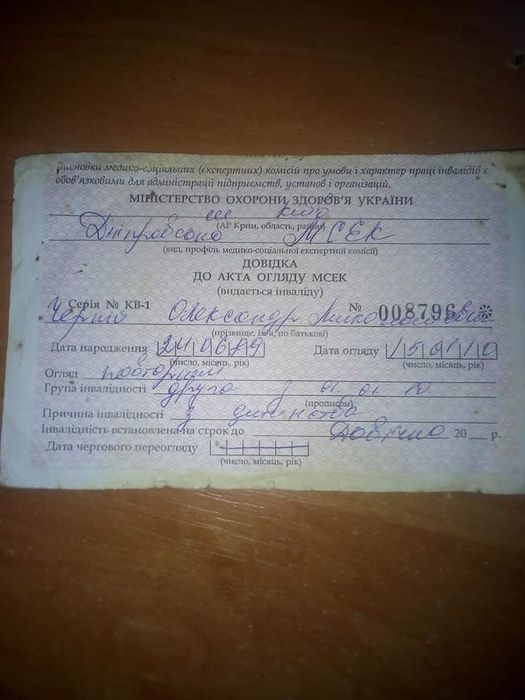 рисновки медико-соціальних (експертних) комісій про умови і характер праці інвалідів є
обов'язковими для адміністрації підприємств, установ і організацій.
МІНІСТЕРСТВО ОХОРОНИ ЗДОРОВ'Я УКРАЇНИ
(АР Крим, область, район)
МСЕК
(вид, профіль медико-соціальної експертної комісії)
ДОВІДКА
ДО АКТА ОГЛЯДУ МСЕК
(видається інваліду)
Серія № КВ-1 № 008796
Олександр Миколайович
(прізвище, ім'я, по батькові)
Дата народження 240689 Дата огляду 150110
(число, місяць, рік) (число, місяць, рік)
Огляд повторний
Група інвалідності друга з 01.01.10
(прописом)
Причина інвалідності з дитинства
Інвалідність встановлена на строк до Довічно 20 р.
Дата чергового переогляду
(число, місяць, рік)